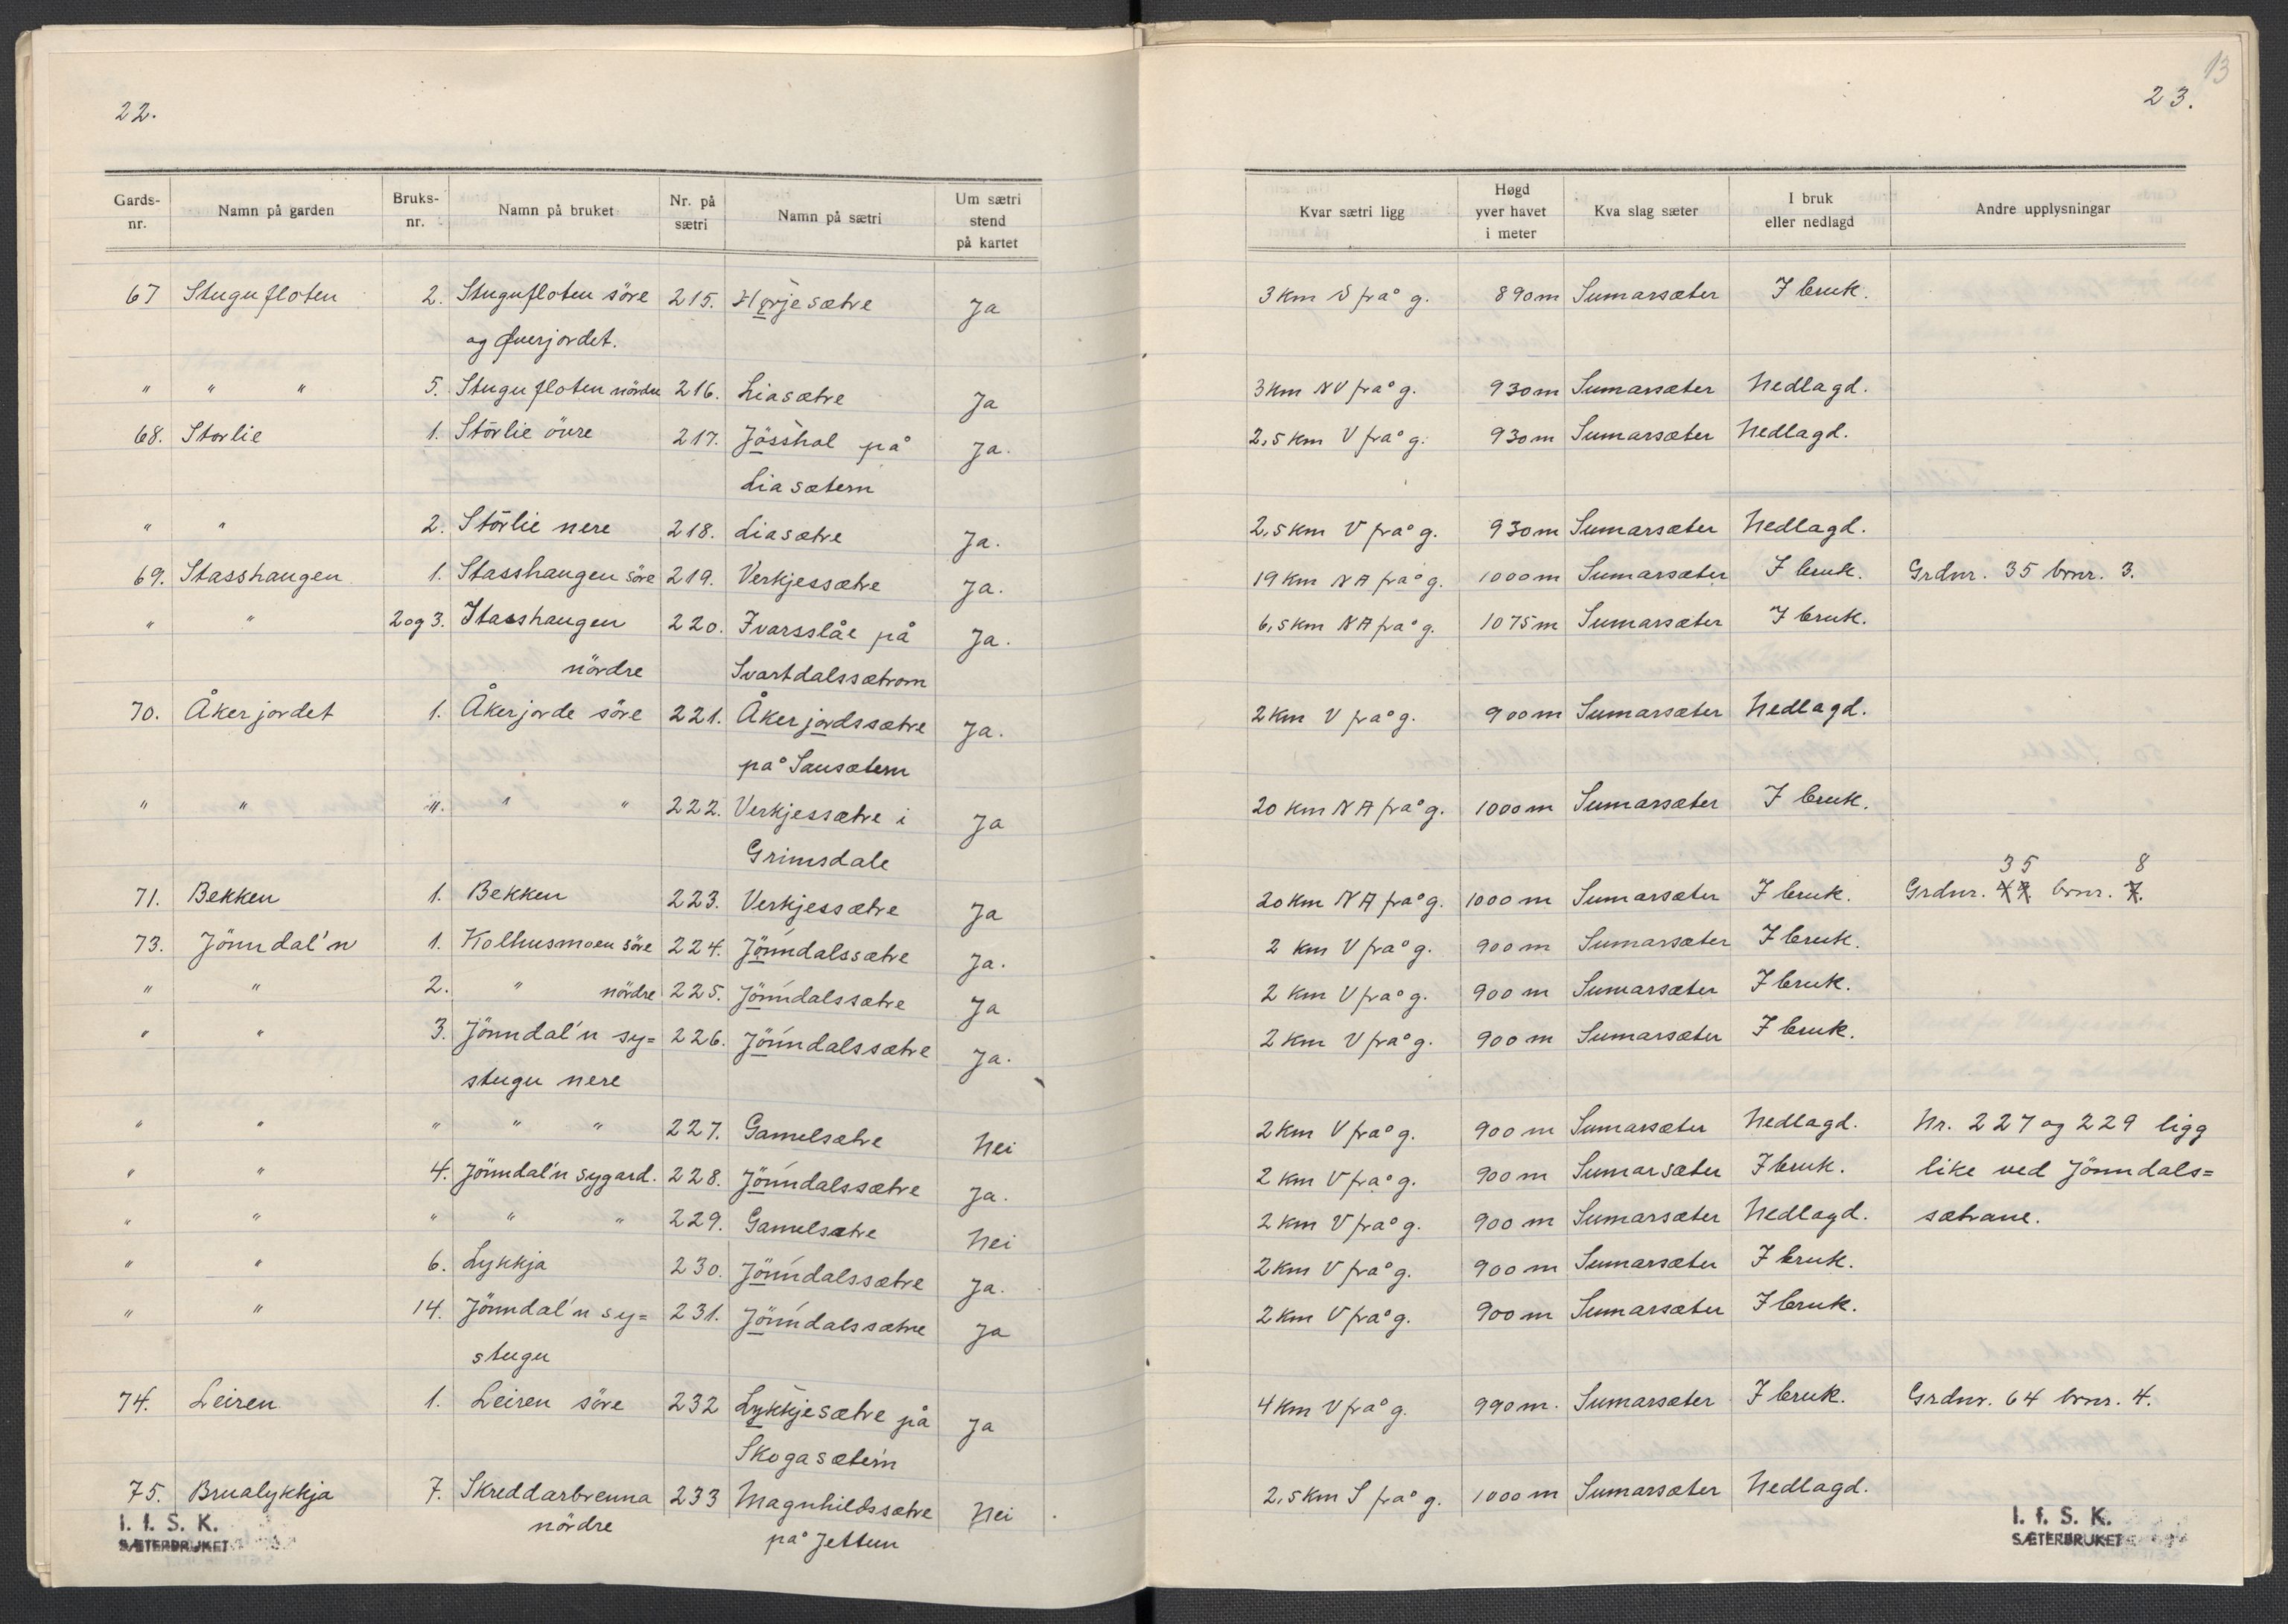 22.
Gards-nr. Namn på garden Bruks-nr. Namn på bruket Nr. på sætri Namn på sætri Um sætri stend på kartet
67 Stugufloten 2. Stugufloten söre 215. Hørjesætre Ja
og Øverjordet.
" " " 5. Stugufloten nördre 216. Liasætre Ja
68. Storlie 1. Störlie övre 217. Jösshol på Ja.
Liasætern
" " 2. Störlie nere 218. Liasætre Ja.
69. Stasshaugen 1. Stasshaugen söre 219. Verkjessætre Ja.
" " 2og3. Stasshaugen 220. Ivarsslåe på Ja.
nördre Svartdalssætrom
70. Åkerjordet 1. Åkerjorde söre 221. Åkerjordssætre Ja.
på Sausætern
" " ". " " 222. Verkjessætre i Ja
Grimsdale
71. Bekken 1. Bekken 223. Verkjessætre Ja
73. Jönndal'n 1. Kolhusmoen söre 224. Jönndalssætre Ja.
" " 2. " nördre 225. Jönndalssætre Ja
" " 3. Jönndal'n sy= 226. Jönndalssætre Ja.
stugu nere
" " " " " 227. Gamelsætre Nei
" " 4. Jönndal'n sygard. 228. Jönndalssætre Ja.
" " " " " 229. Gamelsætre Nei
" " 6. Lykkja 230. Jönndalssætre Ja.
" " 14. Jönndal'n sy= 231. Jönndalssætre Ja
stugu
74. Leiren 1. Leiren söre 232 Lykkjesætre på Ja
Skogasætern
75. Brualykkja 7. Skreddarbrenna 233 Magnhildssætre Nei
nördre på Jettun
I. f. S. K.
SÆTERBRUKET
13
23.
Kvar sætri ligg Høgd yver havet i meter Kva slag sæter I bruk eller nedlagd Andre upplysningar
3 km S frå g. 890 m Sumarsæter I bruk.
3 km NV frå g. 930 m Sumarsæter Nedlagd.
2,5 km V frå g. 930 m Sumarsæter Nedlagd.
2,5 km V frå g. 930 m Sumarsæter Nedlagd.
19 km NA frå g. 1000 m Sumarsæter I bruk. Grdnr. 35 brnr. 3.
6,5 km NA frå g. 1075 m Sumarsæter I bruk.
2 km V frå g. 900 m Sumarsæter Nedlagd.
20 km NA frå g. 1000 m Sumarsæter I bruk.
35 8
20 km NA frå g. 1000 m Sumarsæter I bruk. Grdnr. brnr. 7.
2 km V frå g. 900 m Sumarsæter I bruk.
2 km V frå g. 900 m Sumarsæter I bruk.
2 km V frå g. 900 m Sumarsæter I bruk.
2 km V frå g. 900 m Sumarsæter Nedlagd. Nr. 227 og 229 ligg
2 km V frå g. 900 m Sumarsæter I bruk. like ved Jönndals=
2 km V frå g. 900 m Sumarsæter Nedlagd. sætrane.
2 km V frå g. 900 m Sumarsæter I bruk.
2 km V frå g. 900 m Sumarsæter I bruk.
4 km V frå g. 990 m. Sumarsæter I bruk. Grdnr. 64 brnr. 4.
2,5 km S frå g. 1000 m Sumarsæter Nedlagd.
I. f. S. K.
SÆTERBRUKET